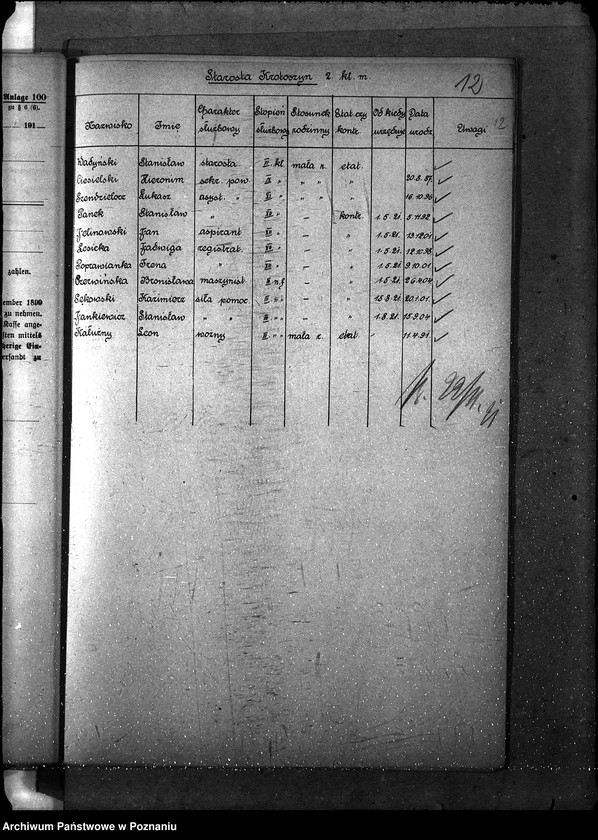 Anlage 100
zu § 6 (6).
191
zahlen.
ember 1899
zu nehmen.
Staffe ange-
sten mittels
herige Ein-
ersandt zu
Starosta Krotoszyn 2. kl. m.
12
Nazwisko Imię Charakter służbowy Stopień służbowy Stosunek rodzinny Etat. czy kontr. Od kiedy urzęduje Data urodz. Uwagi 12
Stanisław starosta kl. mała r. etat.
Ciesielski Hieronim sekr. pow. " " " " 20.8.87.
Szendzielorz Łukasz asyst. " " " " "
Panek Stanisław " " – kontr. 1.5.21. 5.11.92
Felinowski Jan aspirant " – " 1.5.21. 13.12.01
Lesicka Jadwiga registrat. " – " 1.5.21.
Poprawianka Irena " " – " 1.5.21 9.10.01
Czerwińska Bronisława maszynist – " 1.5.21. 26.4.04
Sękowski Kazimierz siła pomoc. – " 15.8.21. 20.1.01.
Jankiewicz Stanisław " " – " 1.8.21. 15.9.04
Kałużny Leon woźny mała r. etat. 11.4.91.
Archiwum Państwowe w Poznaniu